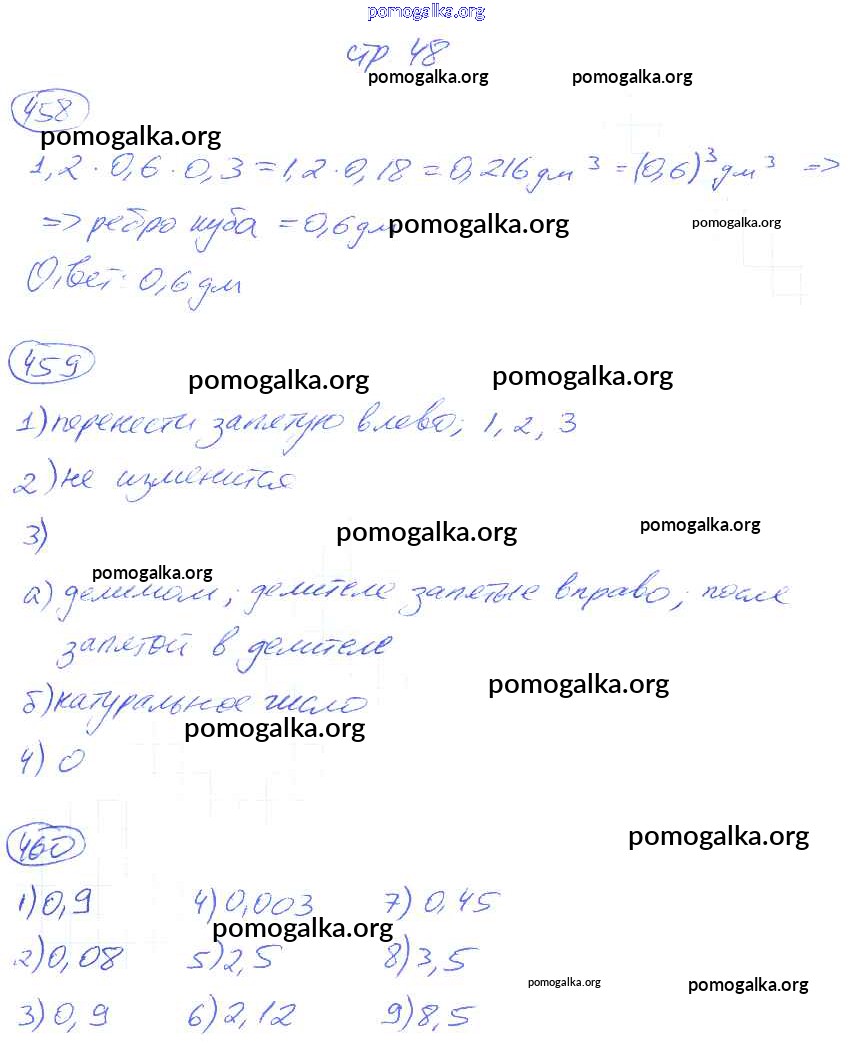 pomogalka.org
стр 48
pomogalka.org pomogalka.org
458
pomogalka.org
1,2 · 0,6 · 0,3 = 1,2 · 0,18 = 0,216 дм³ = (0,6)³ дм³ =>
=> ребро куба = 0,6 дм
pomogalka.org pomogalka.org
Ответ: 0,6 дм
459
pomogalka.org pomogalka.org
1) перенести запятую влево; 1, 2, 3
2) не изменится
3)
pomogalka.org pomogalka.org
pomogalka.org
а) делимом; делителе запятые вправо; после
запятой в делителе
pomogalka.org
б) натуральное число
pomogalka.org
4) 0
460
pomogalka.org
1) 0,9 4) 0,003 7) 0,45
pomogalka.org
2) 0,08 5) 2,5 8) 3,5
pomogalka.org pomogalka.org
3) 0,9 6) 2,12 9) 8,5